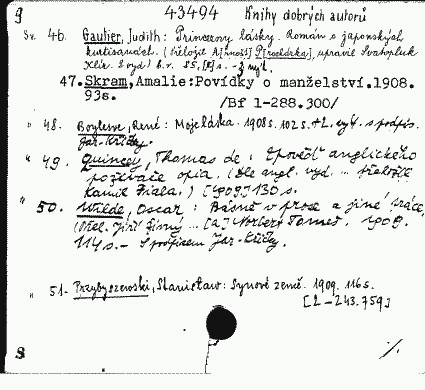 9 43494 Knihy dobrých autorů
Sv. 46. Gautier, Judith: Princezny lásky. Román o japonských
kurtisanách. (Přeložil A[rnošt] P[rocházka], upravil Svatopluk
Klír. 2 vyd.) b.r. 85, [8] s. - 3 výt.
47. Skram, Amalie: Povídky o manželství. 1908.
93s. /Bf 1-288.300/
" 48. Boylesve, René: Moje láska. 1908 s. 102 s. + 2. výt. s podpis.
Jar. Křičky.
" 49. Quincey, Thomas de: Zpověď anglického
poživače opia. (Dle angl. vyd. ... přeložil
Kamil Fiala.) [1909] 130 s.
" 50. Wilde, Oscar: Básně v próze a jiné práce,
(Přel. Jiří Živný ... [a] Norbert Fomeš. 1909.
114 s. - S podpisem Jar. Křičky.
" 51. Przybyszewski, Stanisław: Synové země. 1909. 116 s.
[2-243.759]
9 %